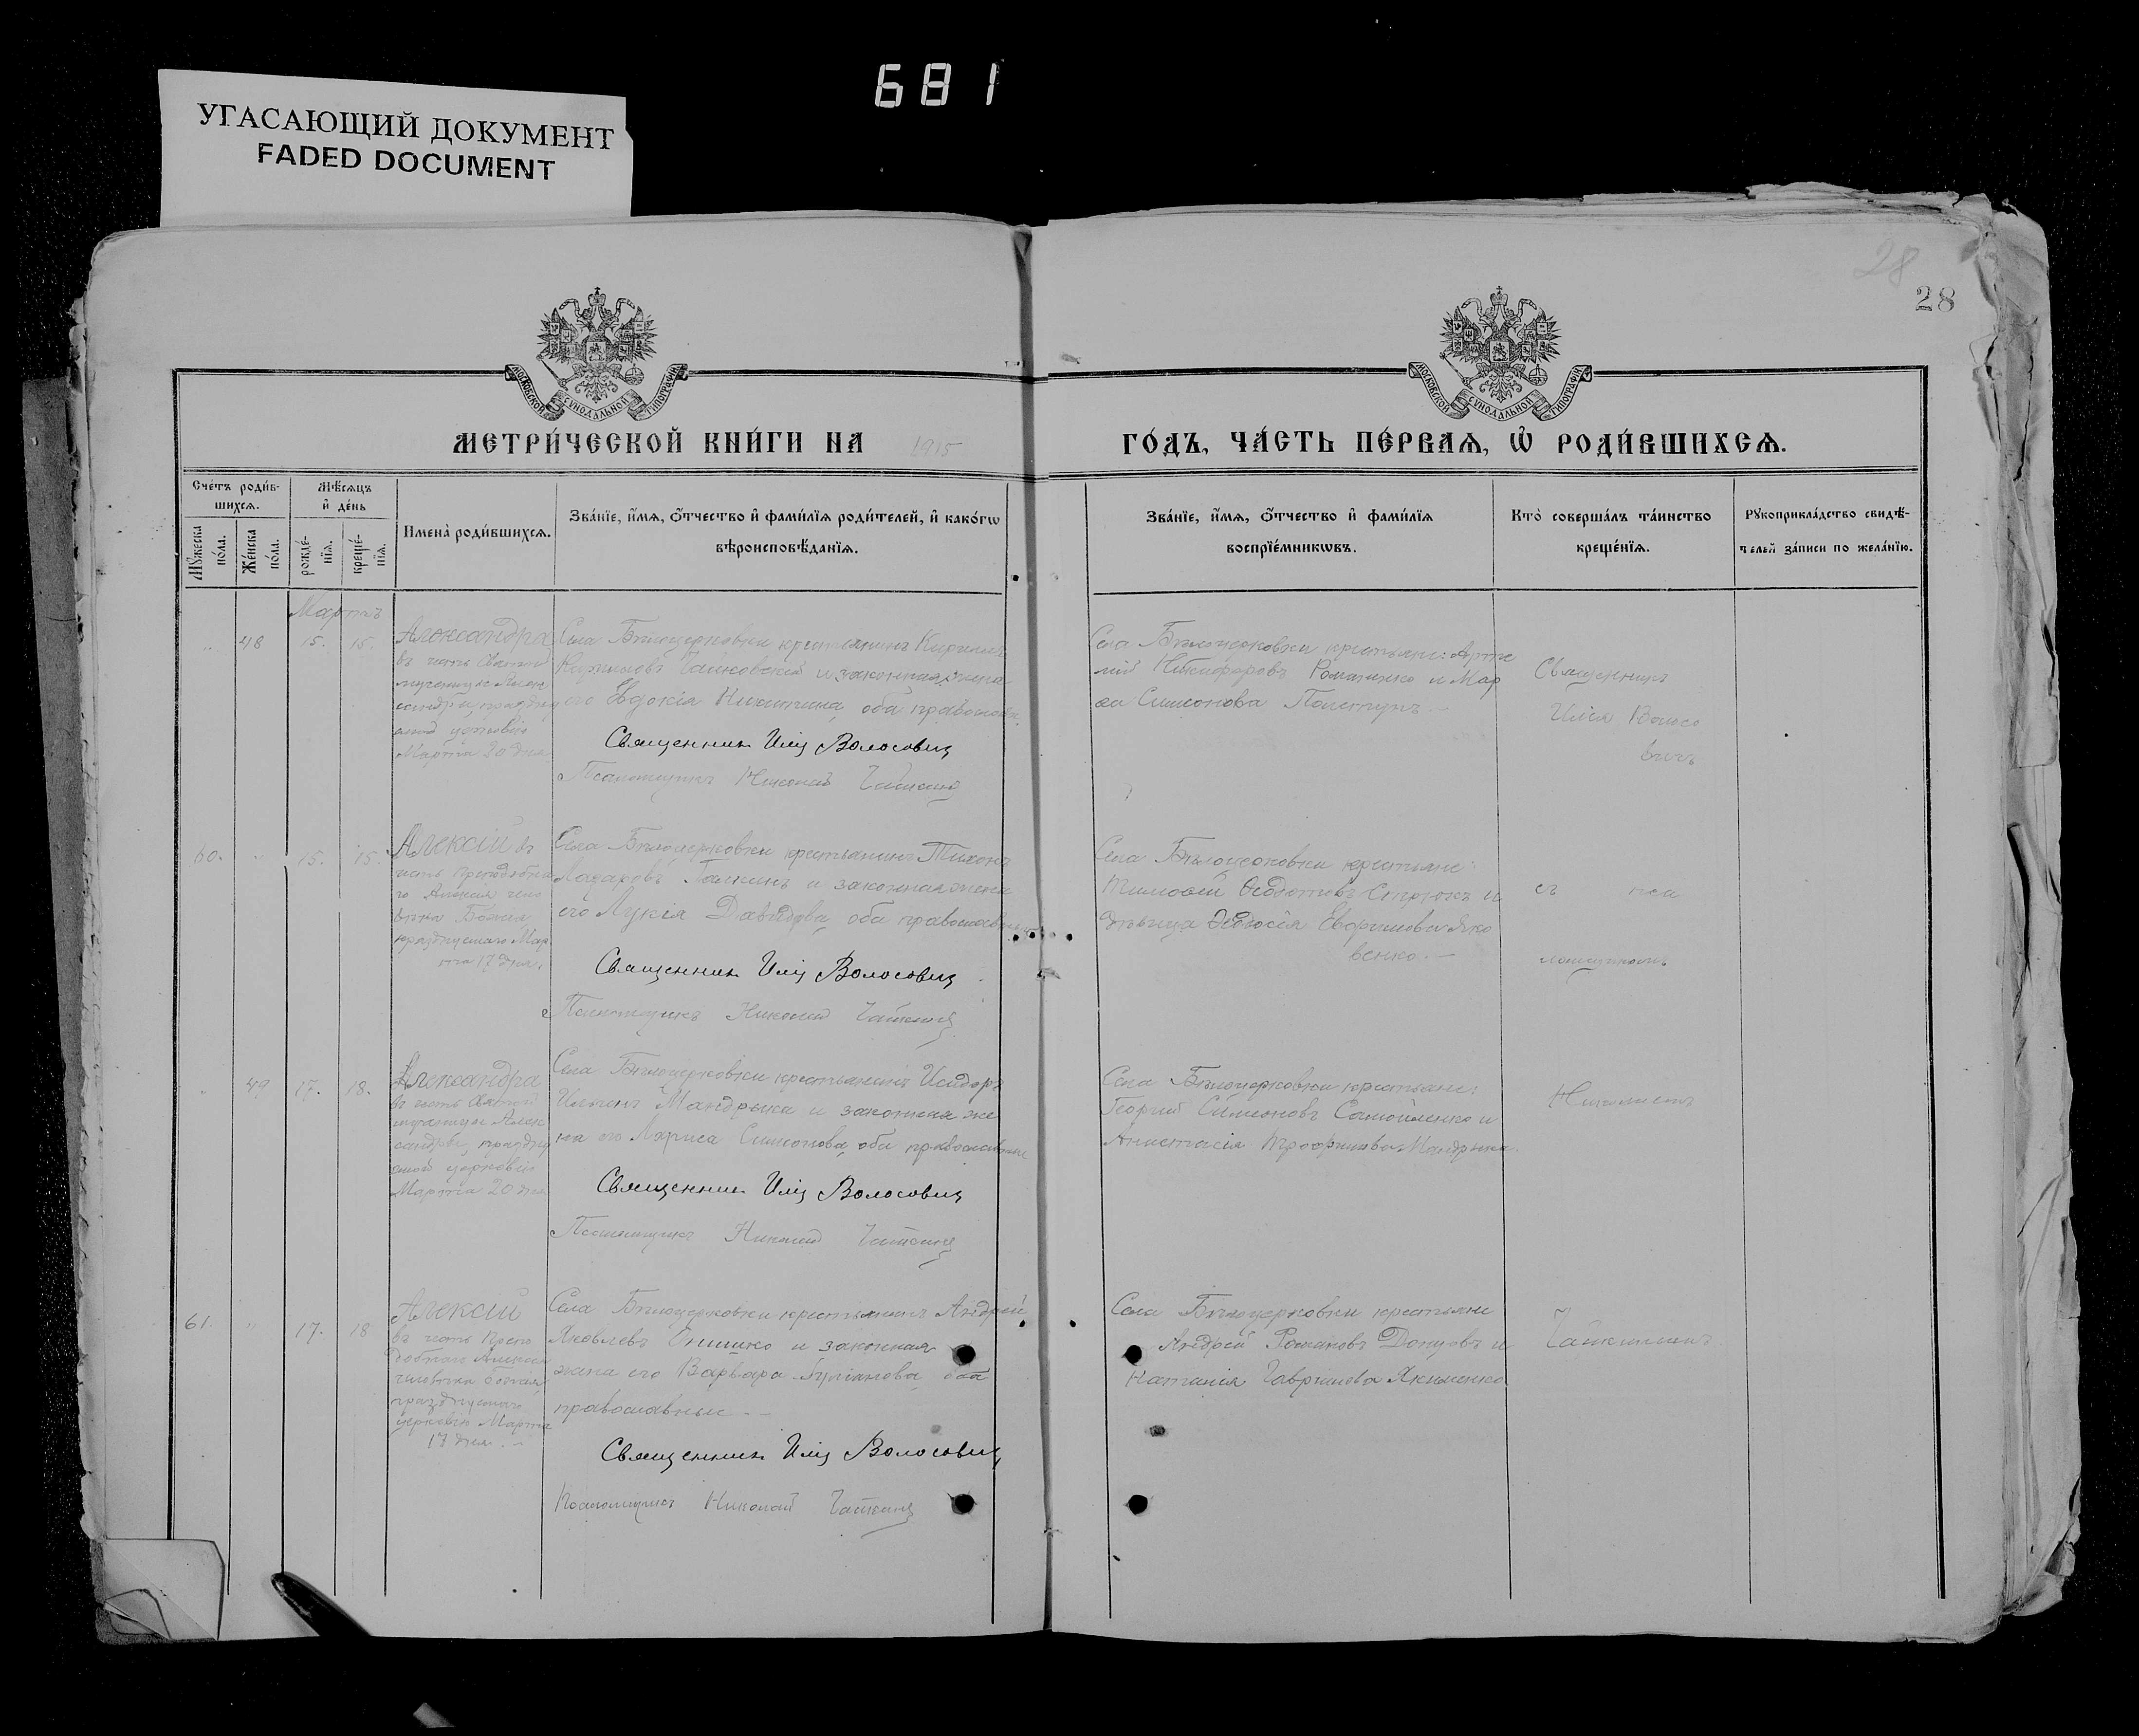 681
УГАСАЮЩИЙ ДОКУМЕНТ
FADED DOCUMENT
28
28
МОСКОВСКОЙ СУНОДАЛЬНОЙ ТИПОГРАФІИ
МОСКОВСКОЙ СУНОДАЛЬНОЙ ТИПОГРАФІИ
МЕТРИ́ЧЕСКОЙ КНИ́ГИ НА 1915 ГО́ДЪ, ЧА́СТЬ ПЕ́РВАѦ, Ѽ РОДИ́ВШИХСѦ.
Сче́тъ роди́в-
шихсѧ.
Мѣ́сѧцъ
и҆ де́нь
Мꙋжеска по́ла.
Же́нска по́ла.
рожде́-
нїѧ.
креще́-
нїѧ.
И҆мена̀ роди́вшихсѧ.
Зва́нїе, и҆́мѧ, ѻ҆́тчество и҆ фами́лїѧ роди́телей, и҆ како́гѡ
вѣроисповѣ́данїѧ.
Зва́нїе, и҆́мѧ, ѻ҆́тчество и҆ фами́лїѧ
воспрїе́мникѡвъ.
Кто̀ соверша́лъ та́инство
креще́нїѧ.
Рꙋкоприкла́дство свидѣ́-
телей за́писи по жела́нїю.
Мартъ
48 15. 15.
Александра
въ честь Святой
мученицы Алек
сандры, праздну
емой церковію
Марта 20 дня.
Села Бѣлоцерковки крестьянинъ Кириллъ
и законная жена
его Евдокія Никитина, оба православн.
Священник Илія Волосович
Псаломщикъ Николай Чайкинъ
Села Бѣлоцерковки крестьяне: Арте
мій Никифоровъ Романенко и Мар
ѳа Симеонова
Священникъ
Илія Волосо
вичъ
60. " 15. 15.
Алексій въ
честь Преподобна
го Алексія чело
вѣка Божія
празднуемаго Мар
та 17 дня.
Села Бѣлоцерковки крестьянинъ Тихонъ
Лазаровъ Галкинъ и законная жена
его Лукія Давидова, оба православные
Священник Илія Волосович
Псаломщикъ Николай Чайкинъ
Села Бѣлоцерковки крестьяне:
Тимоѳей Ѳеодотовъ и
дѣвица Ѳеодосія Яко
венко.
съ пса
ломщикомъ
49 17. 18.
Александра
въ честь Святой
мученицы Алек
сандры, праздну
емой церковію
Марта 20 дня
Села Бѣлоцерковки крестьянинъ Исидоръ
Ильинъ Мандрыка и законная же
на его Лариса Симеонова, оба православные
Священник Илія Волосович
Псаломщикъ Николай Чайкинъ
Села Бѣлоцерковки крестьяне:
Георгій Симеоновъ Самойленко и
Анастасія Трофимова Мандрыка.
Николаемъ
61. " 17. 18
Алексій
въ честь Препо
добнаго Алексія
человѣка Божія,
празднуемаго
церковію Марта
17 дня.
Села Бѣлоцерковки крестьянинъ Андрей
Яковлевъ Онишко и законная
жена его Варвара Іуліанова, оба
православные
Священник Илія Волосович
Псаломщикъ Николай Чайкинъ
Села Бѣлоцерковки крестьяне
Андрей Романовъ Донцовъ и
Наталія Гавриилова Якименко
Чайкинымъ